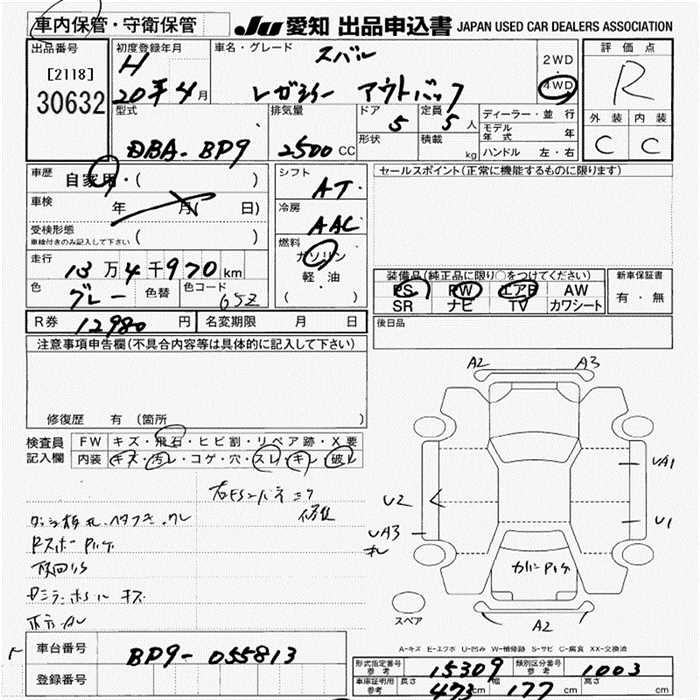 車内保管・守衛保管
JU 愛知 出品申込書 JAPAN USED CAR DEALERS ASSOCIATION
出品番号
[2118]
30632
初度登録年月
H
20年4月
車名・グレード
スバル
レガシィー アウトバック
2WD
・
4WD
評価点
R
外装 内装
C C
型式
DBA-BP9
排気量
2500CC
ドア
5
定員
5人
形状
積載
kg
ディーラー・並行
モデル年式 年
ハンドル 左・右
車歴
自家用・( )
車検
年 月( 日)
受検形態
車検付きのみ記入して下さい ( )
走行
13万4千970km
色
グレー
色替
色コード
65Z
シフト
AT
冷房
AAC
燃料
ガソリン
軽・油
・
( )
セールスポイント(正常に機能するものに限ります)
装備品(純正品に限り○をつけてください)
PS PW エアB AW
SR ナビ TV カワシート
新車保証書
有・無
後日品
R券 12980 円
名変期限 月 日
注意事項申告欄(不具合内容等は具体的に記入して下さい)
修復歴 有 (箇所 )
検査員
記入欄
FW キズ・飛石・ヒビ割・リペア跡・X要
内装 キズ・汚レ・コゲ・穴・スレ・キレ・破レ
修正
キズ
A2 A3
UA1
U2
UA3
U1
A2
スペア
A-キズ E-エクボ U-凹み W-補修跡 S-サビ C-腐食 XX-交換済
車台番号
BP9-055813
登録番号
形式指定番号
参考
15309
類別区分番号
参考
1003
車庫証明用
参考
長さ 473cm
幅 177cm